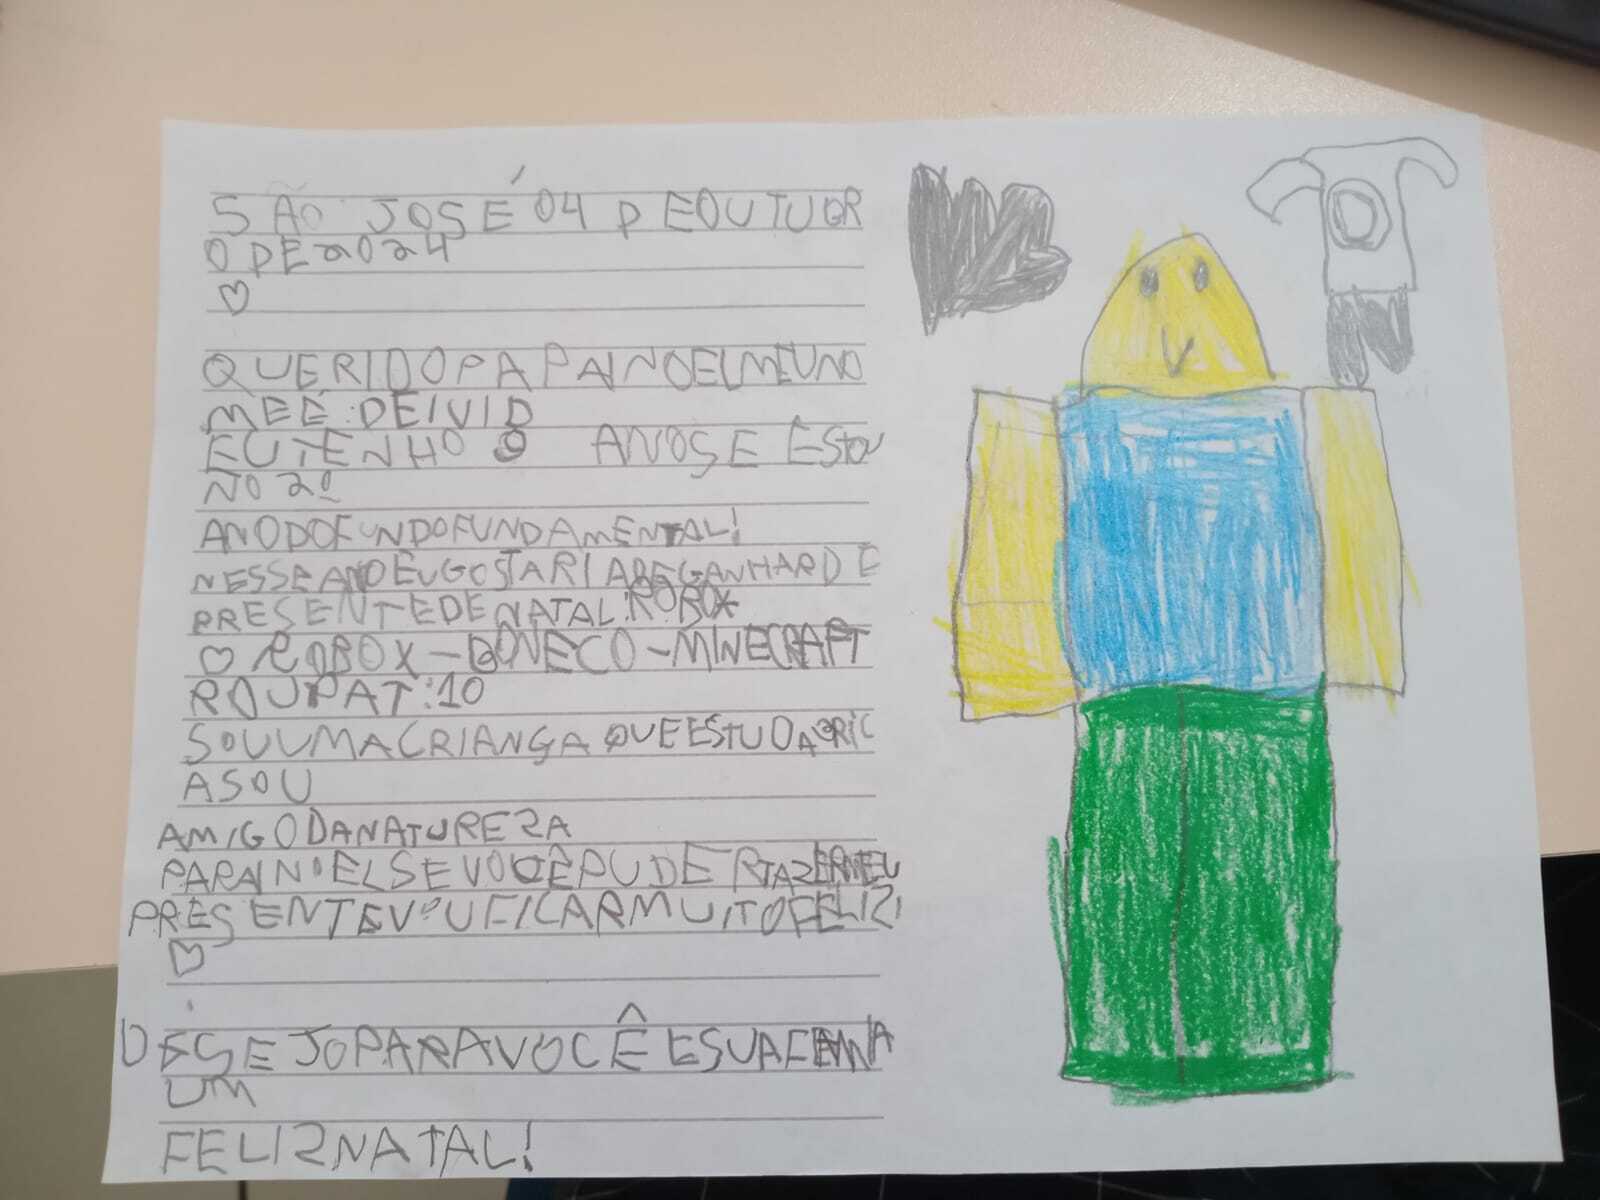 SÃO JOSÉ 04 DE OUTUBR
O DE 2024
QUERIDO PAPAI NOEL MEU NO
ME É: DEIVID
EU TENHO 9 ANOS E ESTOU
NO 2º
ANO DO FUNDO FUNDAMENTAL!
NESSE ANO EU GOSTARIA DE GANHAR DE
PRESENTE DE NATAL: ROBOX
ROBOX - BONECO - MINECRAFT
ROUPA T:10
SOU UMA CRIANÇA QUE ESTUDA BRIC
A SOU
AMIGO DA NATUREZA
PAPAI NOEL SE VOCÊ PUDER TAZER MEU
PRESENTE VOU FICAR MUITO FELIZ!
DESEJO PARA VOCÊ E SUA
UM
FELIZ NATAL!